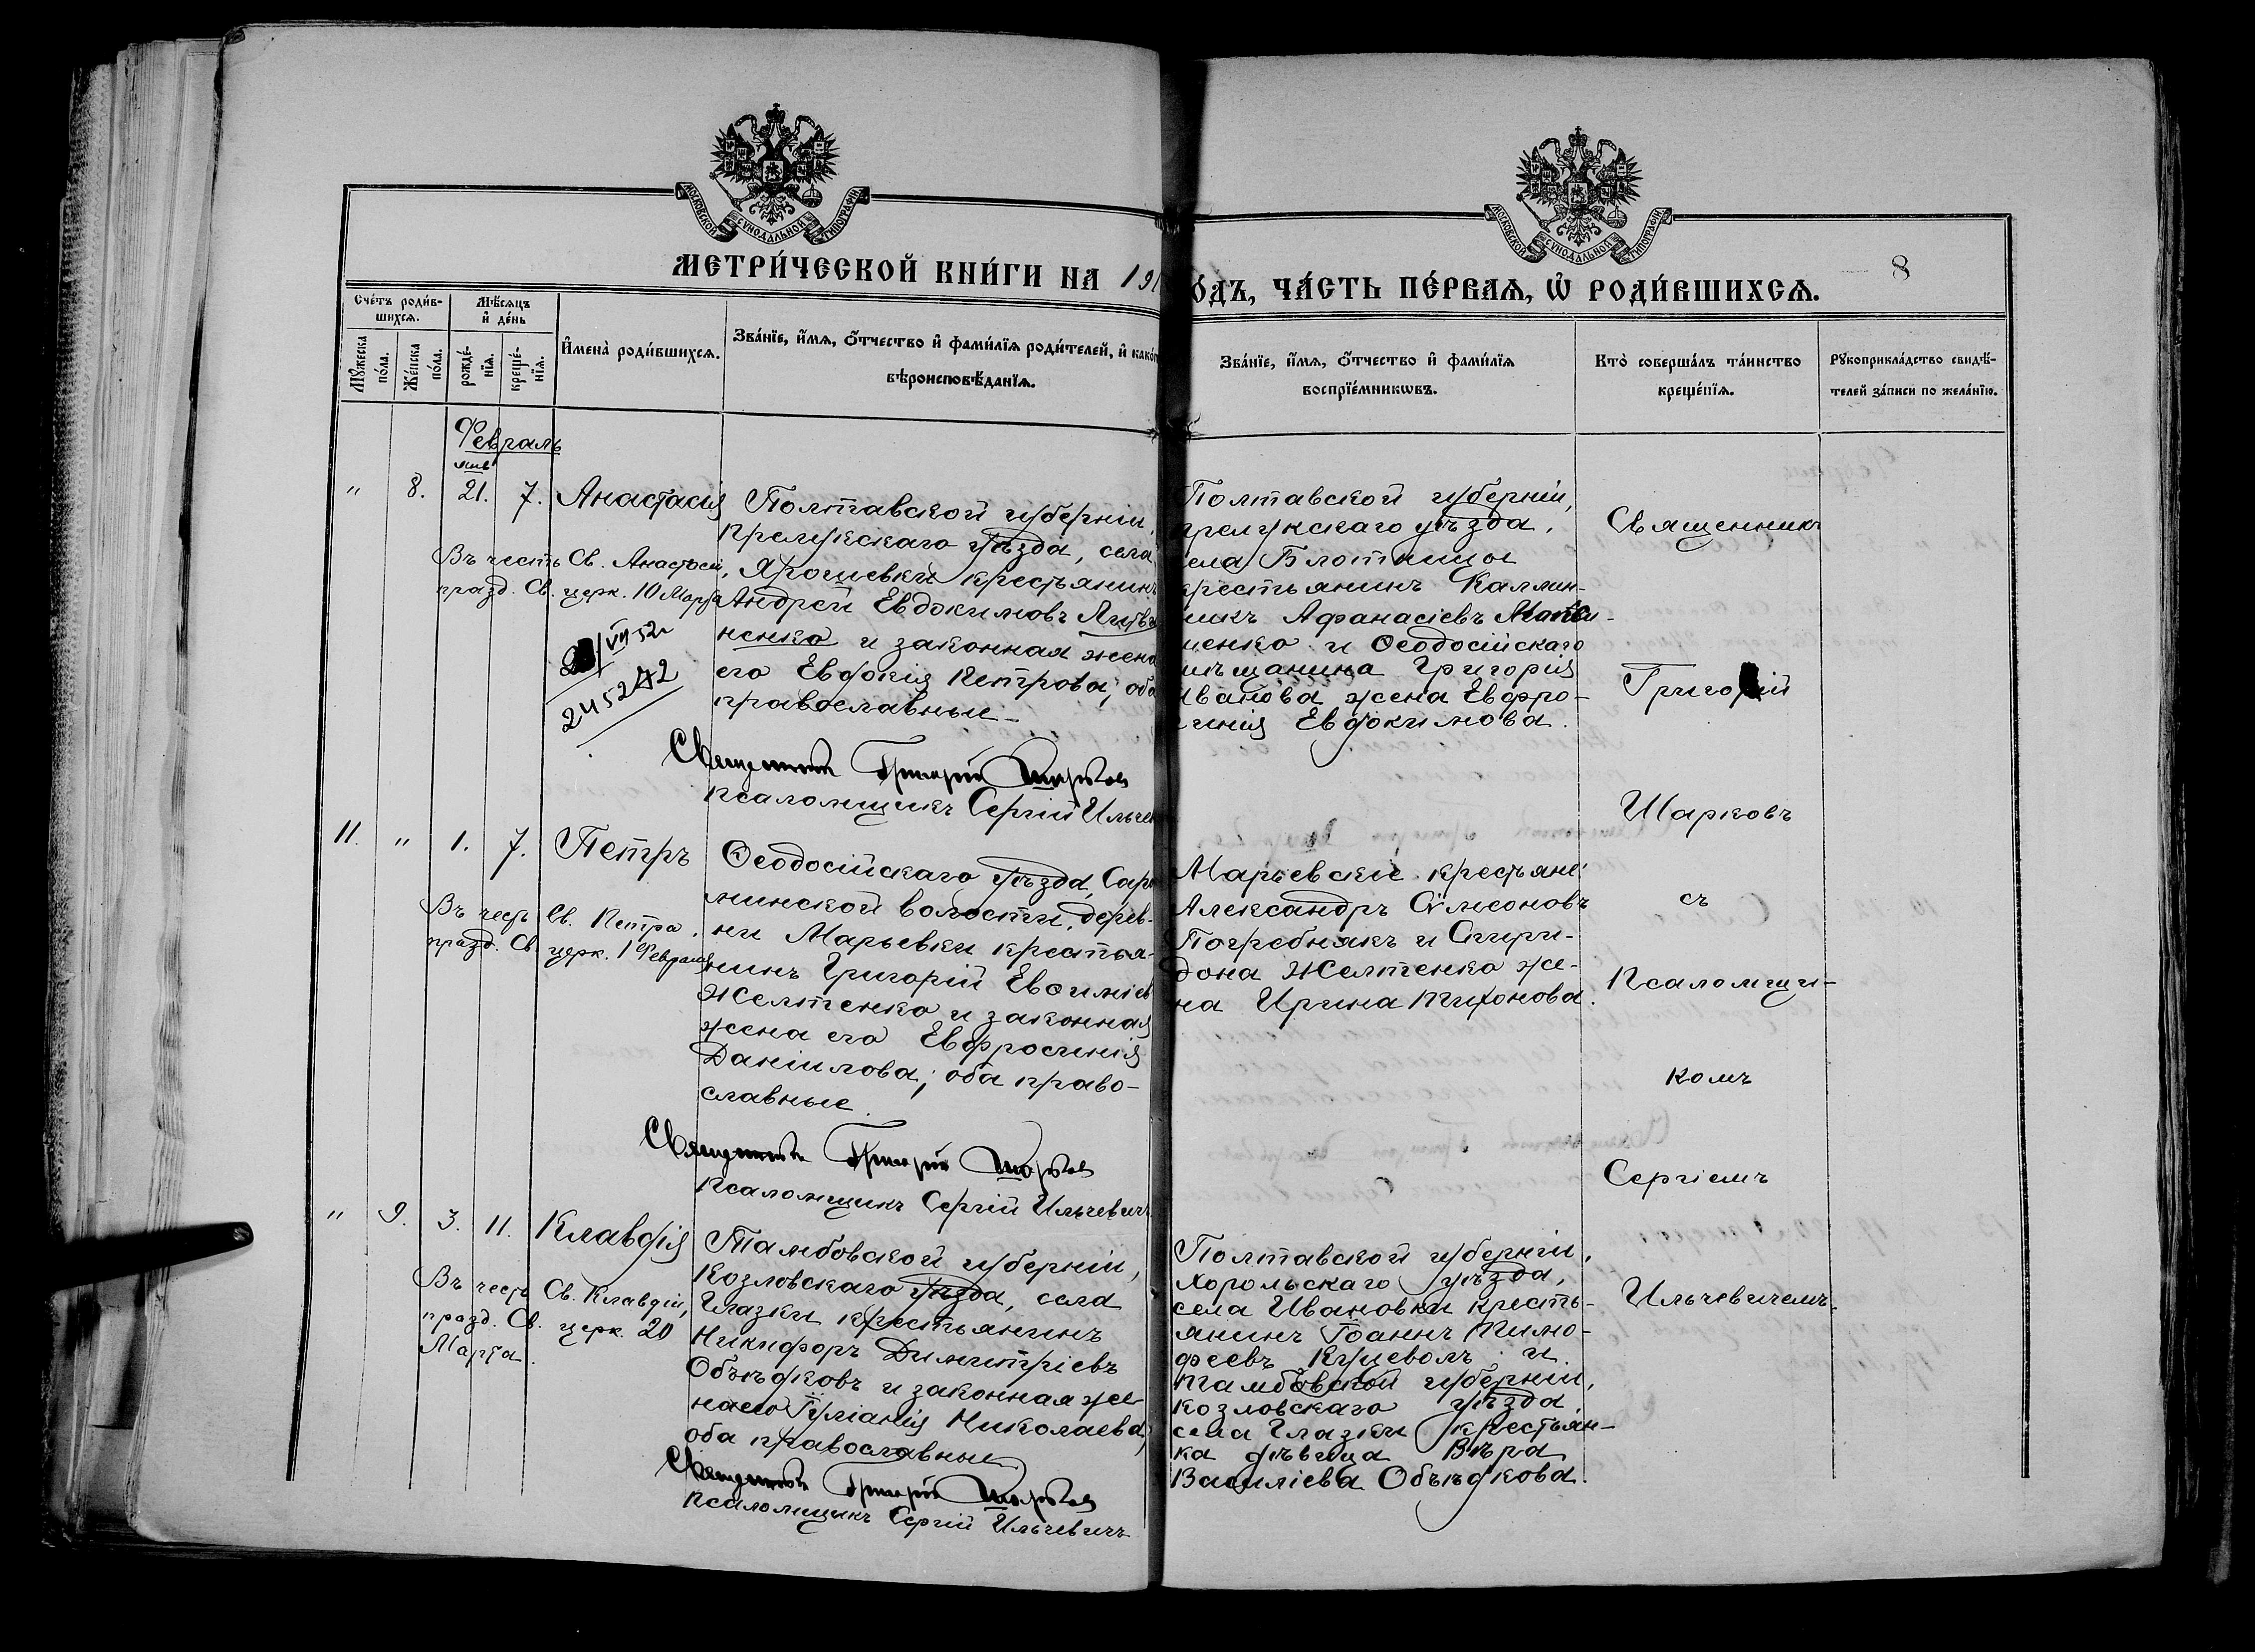 МОСКОВСКОЙ СУНОДАЛЬНОЙ ТИПОГРАФІИ
МОСКОВСКОЙ СУНОДАЛЬНОЙ ТИПОГРАФІИ
МЕТРИ́ЧЕСКОЙ КНИ́ГИ НА 191
О́ДЪ, ЧА́СТЬ ПЕ́РВАЯ, Ѡ РОДИ́ВШИХСЯ.
8
Сче́тъ роди́в-
шихся.
Мѣ́сяцъ
и де́нь
Му́жеска
по́ла.
Же́нска
по́ла.
рожде́-
нїя.
креще́-
нїя.
Имена̀ роди́вшихся.
Зва́нїе, и́мя, о́тчество и фами́лїя роди́телей, и како́г
вѣроисповѣ́данїя.
Зва́нїе, и́мя, о́тчество и фами́лїя
воспрїе́мникѡвъ.
Кто̀ соверша́лъ та́инство
креще́нїя.
Рукоприкла́дство свидѣ́-
телей за́писи по жела́нїю.
Февраль
янв
" 8. 21. 7. Анастасія
Въ честь Св. Анастасіи,
празд. Св. церк. 10 Марта
VII 52
245242
Полтавской губерніи,
Прилукскаго уѣзда, села
Ярошевки крестьянинъ
Андрей Евдокимовъ Литви
ненко и законная жена
его Евдокія Петрова; оба
православные.
Священникъ Григорій Шарковъ
Псаломщикъ Сергій Ильчев
Полтавской губерніи,
прилукскаго уѣзда,
села Блотницы
крестьянинъ Каллин-
никъ Афанасіевъ
щенко и Ѳеодосійскаго
мѣщанина Григорія
Иванова жена Евфро-
синія Евдокимова.
11. " 1. 7. Петръ
Въ честь Св. Петра,
празд. Св. церк. 1 Февраля
Ѳеодосійскаго уѣзда, Сара
минской волости, дерев-
ни Марьевки крестья-
нинъ Григорій Евѳиміев
Желтенко и законная
жена его Евфросинія
Даніилова; оба право-
славные.
Священникъ Григорій Шарковъ
Псаломщикъ Сергій Ильчевичъ
Марьевскіе крестьяне:
Александръ Сѵмеоновъ
Погребнякъ и Спири-
дона Желтенко же-
на Ирина Тихонова.
" 9. 3. 11. Клавдія
Въ честь Св. Клавдіи,
празд. Св. церк. 20
Марта.
Тамбовской губерніи,
Козловскаго уѣзда, села
Глазки крестьянинъ
Никифоръ Димитріевъ
Объѣдковъ и законная же-
на его Іуліанія Николаева;
оба православные
Священникъ Григорій Шарковъ
Псаломщикъ Сергій Ильчевичъ
Полтавской губерніи,
Хорольскаго уѣзда,
села Ивановки кресть-
янинъ Іоаннъ Тимо-
феевъ Куцеволъ и
Тамбовской губерніи,
козловскаго уѣзда
села Глазки крестьян-
ка дѣвица Вѣра
Василіева Объѣдкова.
Священникъ
Григорій
Шарковъ
съ
Псаломщи-
комъ
Сергіемъ
Ильчевичемъ